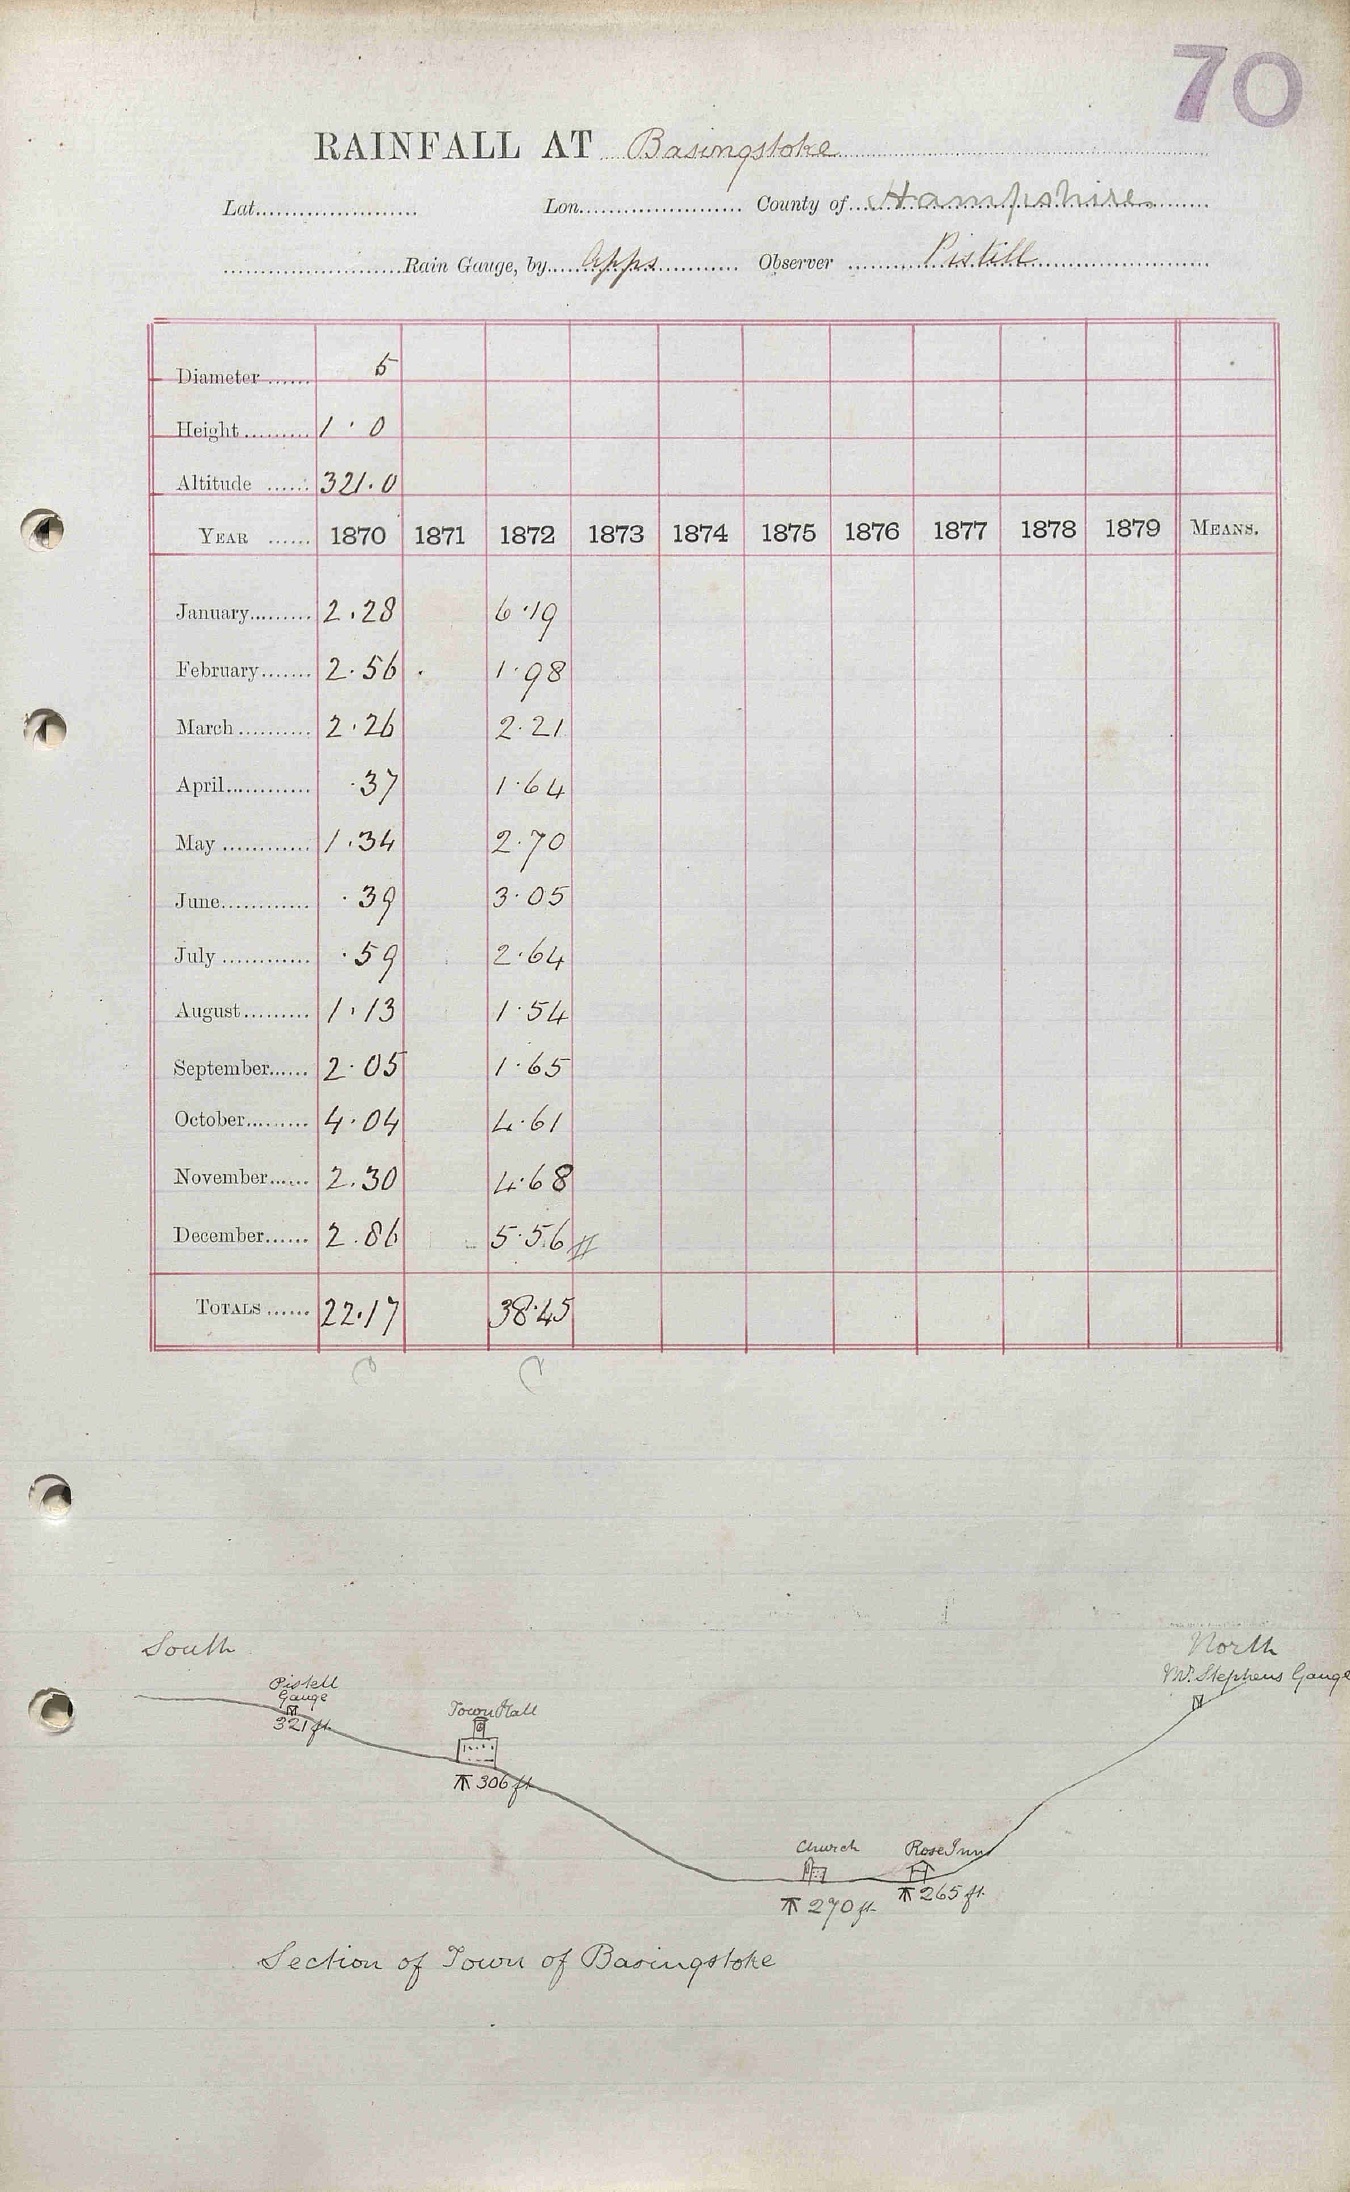 70
RAINFALL AT Basingstoke
Lat. Lon. County of Hampshire
Rain Gauge, by Apps Observer Pistill
Diameter 5
Height 1·0
Altitude 321.0
YEAR 1870 1871 1872 1873 1874 1875 1876 1877 1878 1879 MEANS.
January 2.28 6·19
February 2.56 1·98
March 2.26 2.21
April ·37 1·64
May 1.34 2·70
June ·39 3·05
July ·59 2·64
August 1.13 1·54
September 2·05 1·65
October 4·04 4·61
November 2.30 4·68
December 2.86 5·56
TOTALS 22.17 38·45
South
North
Pistell
Gauge
321 ft.
Mr. Stephens Gauge
Town Hall
306 ft
Church
Rose Inn
270 ft.
265 ft.
Section of Town of Basingstoke